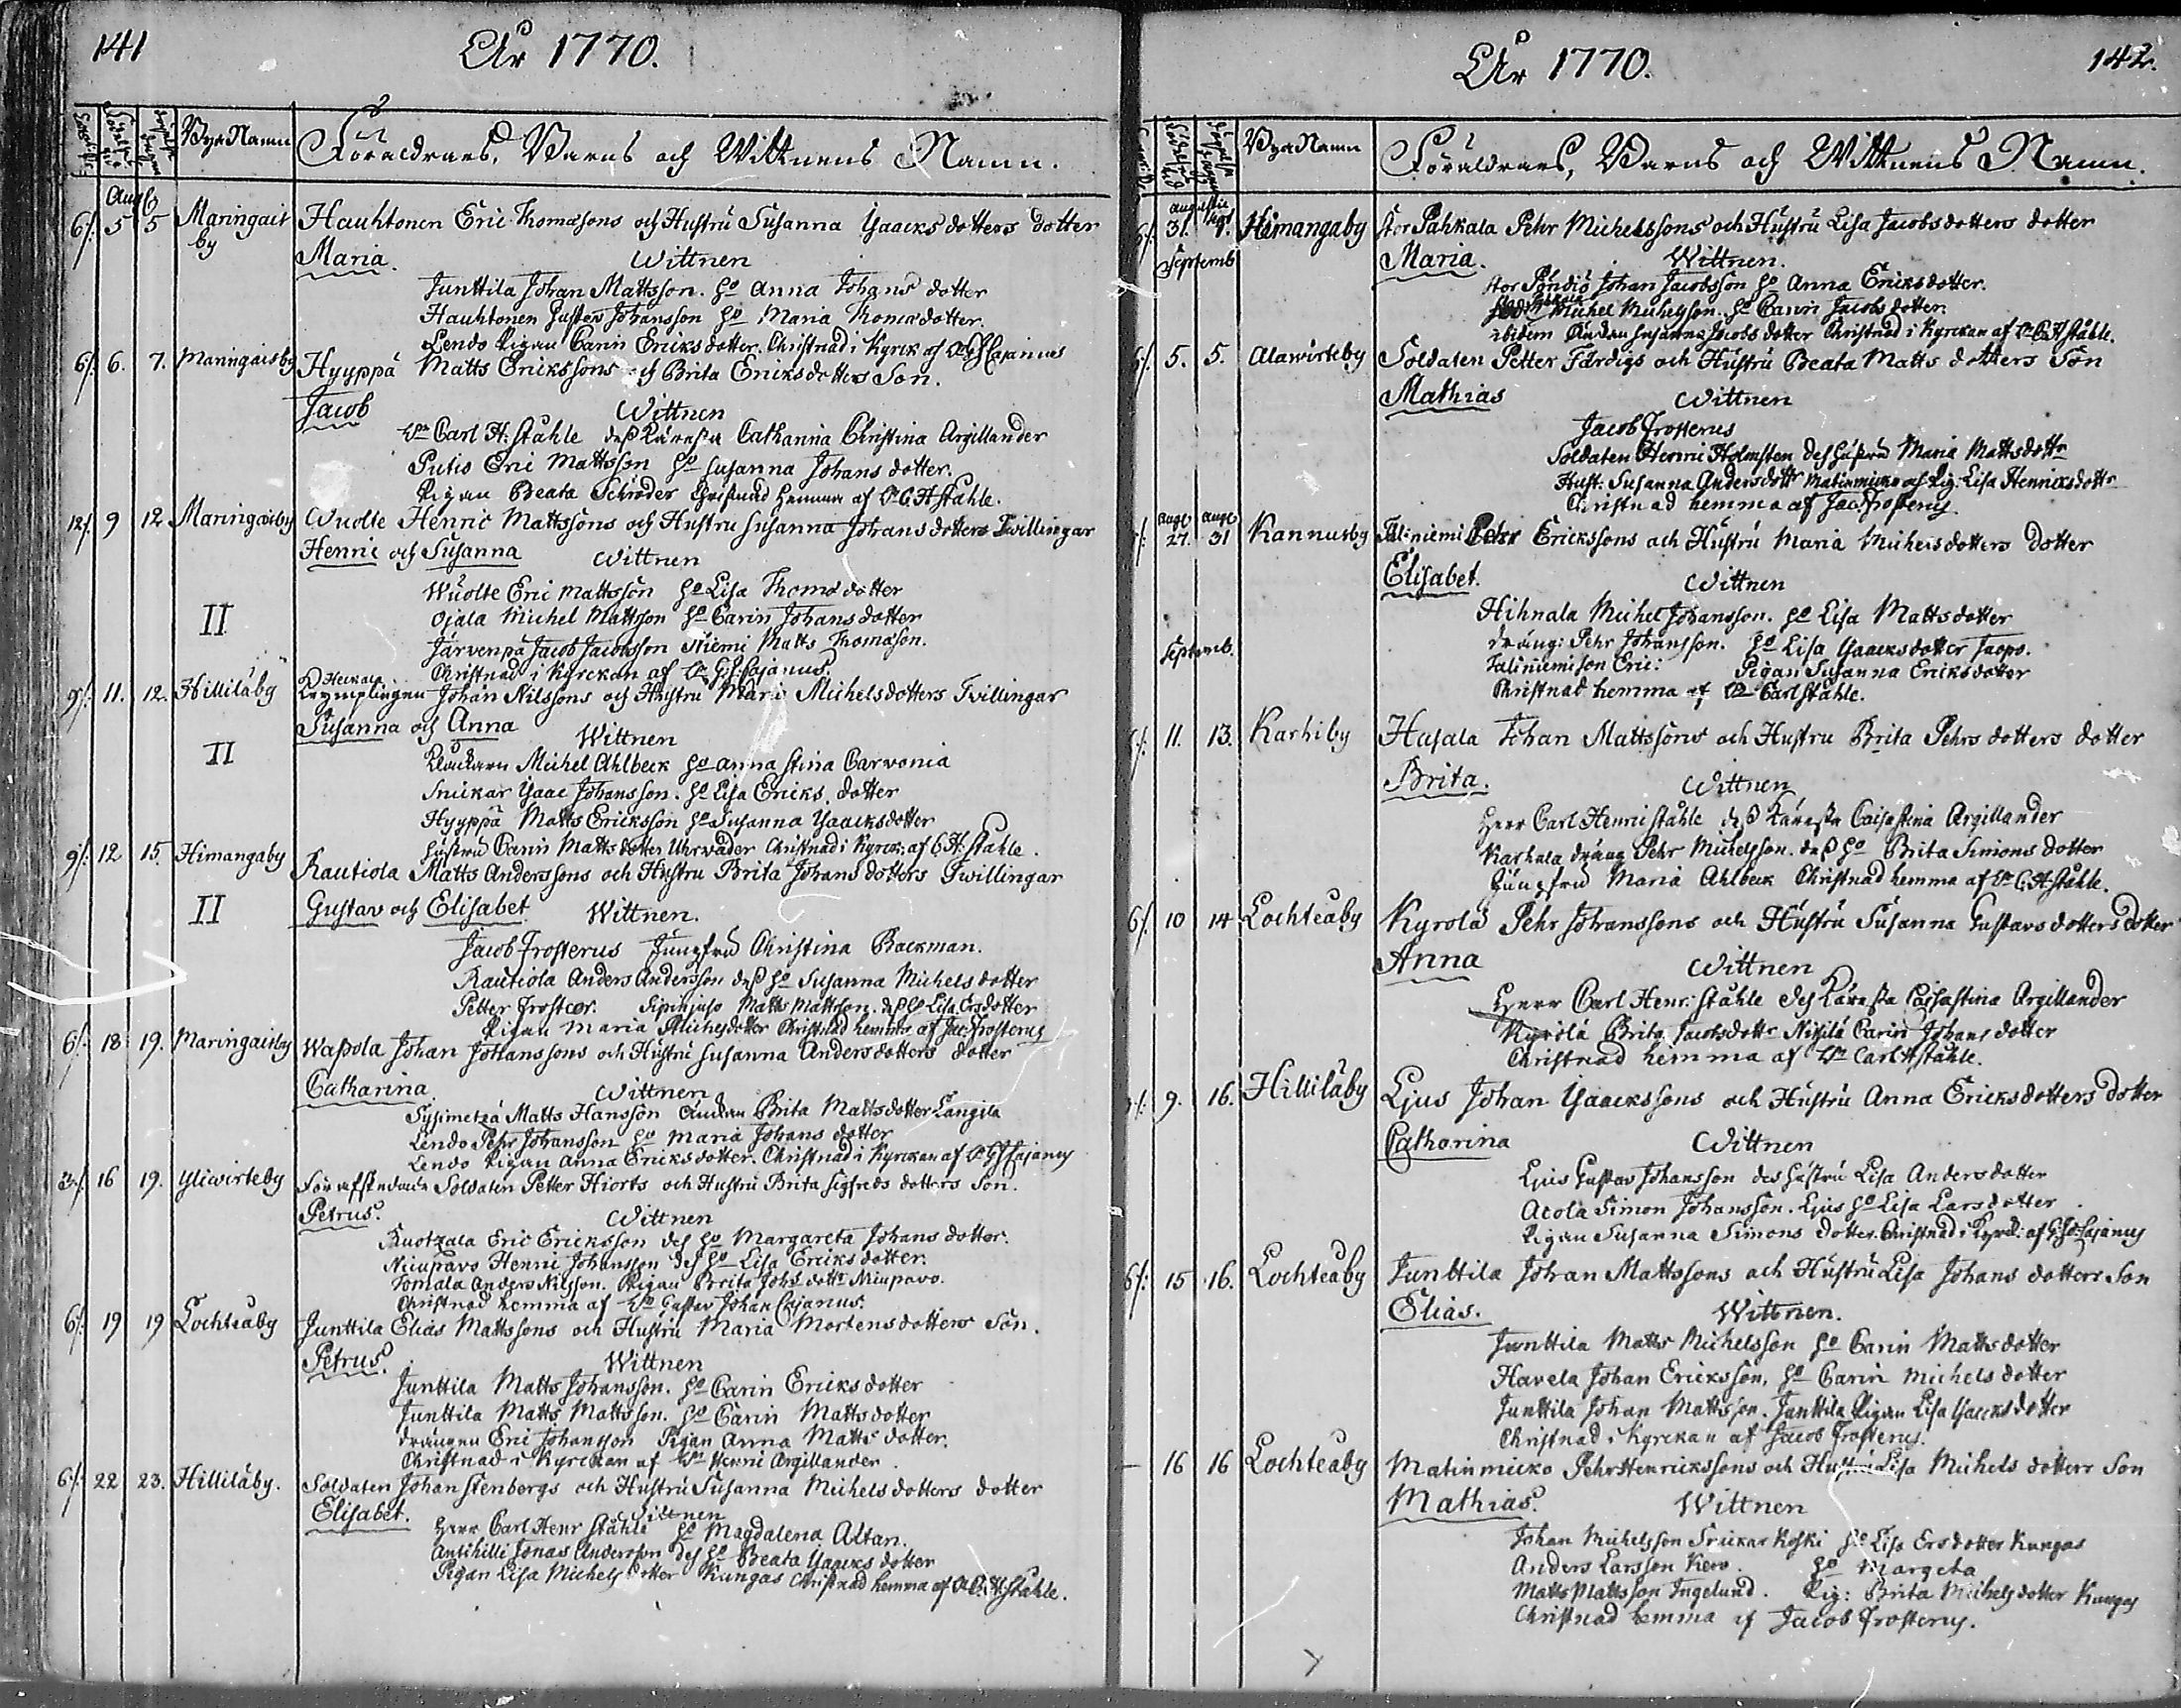 141
År 1770.
Byx Namn Föräldrars, Barns och Wittnens Namn.
Aug
6/: 5 5 Maringais Hauhtonen Eric Thomasons och Hustru Susanna Yaacks dotters dotter
by
Maria. Wittnen
Junttila Johan Mattsson. ho Anna Johans dotter
Hauhtonen Gustav Johansson ho Maria Thomædotter
Lendo Pigan Carin Ericks dotter. Christnad i Kyrck af GJ Cajanus
6/: 6. 7. Maringaisby Hyyppä Matts Erickssons och Brita Ericksdotters Son.
Jacob Wittnen
Hr Carl H: Ståhle dess Käresta Catharina Christina Argillander
Putis Eric Mattsson ho Susanna Johans dotter.
Pigan Beata Schröder Christnad hemma af C.H Ståhle.
12/. 9 12 Maringaisby Wuolte Henric Mattssons och Hustru Susanna Johans dotters Twillingar
Henric och Susanna Wittnen
Wuolte Eric Mattsson ho Lisa Thomædotter
II Ojala Michel Mattsson ho Carin Johans dotter
Järvenpä Jacob Jacobsson Niemi Matts Thomason.
Christnad i Kyrckan af GJ: Cajanus.
9/: 11. 12. Hilliläby Krymplingen Johan Nilssons och Hustru Maria Michelsdotters Tvillingar
Susanna och Anna Wittnen
II Klockarn Michel Ahlbeck ho Anna Stina Carvonia
Snickar Yaac Johansson. ho Lisa Ericks dotter
Hyyppä Matts Ericksson ho Susanna Yaacksdotter
Hustru Carin Matts dotter Christnad i Kyrck: af C.H: Ståhle.
9/: 12 15 Himangaby Rautiola Matts Anderssons och Hustru Brita Johans dotters Twillingar
II Gustav och Elisabet Wittnen.
Jacob Frosterus Jungfru Christina Backman.
Rautiola Anders Andersson dess ho Susanna Michels dotter
Petter Matts Mattsson. dess ho Lisa Ersdotter
Pigan Maria Michelsdotter Christnad hemma af Jac: Frosterus
6/: 18 19. Maringaisby Wapola Johan Johanssons och Hustru Susanna Anders dotters dotter
Catharina Wittnen
Sysimetzä Matts Hansson Änckan Brita Mattsdotter Långila
Lendo Pehr Johansson ho Maria Johans dotter
Lendo Pigan Anna Ericksdotter. Christnad i Kyrckan af GJ Cajanus
16 19. Yliwirteby Förafskedade Soldaten Petter Hiorts och Hustru Brita Sigfreds dotters Son.
Petrus. Wittnen
Eric Ericksson des ho Margareta Johans dotter.
Niupavo Henric Johansson des ho Lisa Ericks dotter.
Tomala Anders Nilsson. Pigan Brita Johs dotr Niupavo.
Christnad hemma af Hr Gustav Johan Cajanus.
6/: 19 19 Lochteåby Junttila Elias Mattssons och Hustru Maria Mortensdotters Son.
Petrus. Wittnen
Junttila Matts Johansson. ho Carin Ericks dotter
Junttila Matts Mattsson. ho Carin Matts dotter
drängen Eric Johansson Pigan Anna Matts dotter.
Christnad i Kyrckan af Hr Henric Argillander.
6/: 22 23. Hilliläby. Soldaten Johan Stenbergs och Hustru Susanna Michels dotters dotter
Elisabet. Wittnen
Herr Carl Henr Ståhle ho Magdalena Altan.
Antihilli Jonas Andersson des ho Beata Yaacks dotter
Pigan Lisa Michels dotter Kungas Christnad hemma af C: H: Ståhle.
År 1770. 142.
Byx Namn Föräldrars, Barns och Wittnens Namn.
Augusti
31. 1. Himangaby Stor Pahkala Pehr Michelssons och Hustru Lisa Jacobsdotters dotter
Septemb
Maria. Wittnen.
Stor Pöndiö Johan Jacobsson ho Anna Ericksdotter.
Michel Michelsson. ho Carin Jacobs dotter.
ibidem Änckan Susanna Jacobs dotter Christnad i Kyrckan af C.H Ståhle.
6/: 5. 5. Alawirteby Soldaten Petter Färdigs och Hustru Beata Matts dotters Son
Mathias Wittnen
Jacob Frosterus
Soldaten Henric Holmsten des Hustru Maria Mattsdottr
Hust. Susanna Andersdottr Matinmicko och Pig: Lisa Henricksdottr
Christnad hemma af Jac: Frosterus
Aug Aug
27. 31 Kannusby Taliniemi Pehr Erickssons och Hustru Maria Michelsdotters dotter
Elisabet. Wittnen
Hihnala Michel Johansson. ho Lisa Mattsdotter
dräng: Pehr Johansson. ho Lisa Yaacksdotter
Septemb.
Taliniemi son Eric: Pigan Susanna Ericksdotter
Christnad hemma af Carl Ståhle.
6/: 11. 13. Karhiby Hasala Johan Mattssons och Hustru Brita Pehrs dotters dotter
Brita. Wittnen
Herr Carl Henric Ståhle dess Käresta Caisastina Argillander
Karhula dräng Pehr Michelsson. dess ho Brita Simons dotter
Jungfru Maria Ahlbeck Christnad hemma af Hr C.H Ståhle.
6/: 10 14 Lochteåby Kyrola Pehr Johanssons och Hustru Susanna Gustavsdotters dotter
Anna Wittnen
Herr Carl Henr: Ståhle des Käresta Caisastina Argillander
Kyrölä Brita Jacobsdottr Nikilä Carin Johans dotter
Christnad hemma af Hr Carl H Ståhle.
9. 16. Hilliläby Ljus Johan Yaackssons och Hustru Anna Ericksdotters dotter
Catharina Wittnen
Ljus Gustav Johansson des Hustru Lisa Andersdotter
Atola Simon Johansson. Ljus ho Lisa Larsdotter
Pigan Susanna Simons dotter. Christnad i Kyrck: af G:J: Cajanus
6/: 15 16. Lochteåby Junttila Johan Mattssons och Hustru Lisa Johans dotters Son
Elias. Wittnen.
Junttila Matts Michelsson ho Carin Mattsdotter
Havela Johan Ericksson, ho Carin Michelsdotter
Junttila Johan Mattsson. Junttila Pigan Lisa Yaacksdotter
Christnad i Kyrckan af Jacob Frosterus.
— 16 16 Lochteåby Matinmicko Pehr Henrickssons och Hustru Lisa Michels dotters Son
Mathias. Wittnen
Johan Michelsson Snickar Koski ho Lisa Ersdotter Kungas
Anders Larsson Kero. ho Margeta
Matts Mattsson Ingelund. Pig: Brita Michelsdotter Kungas
Christnad hemma af Jacob Frosterus.